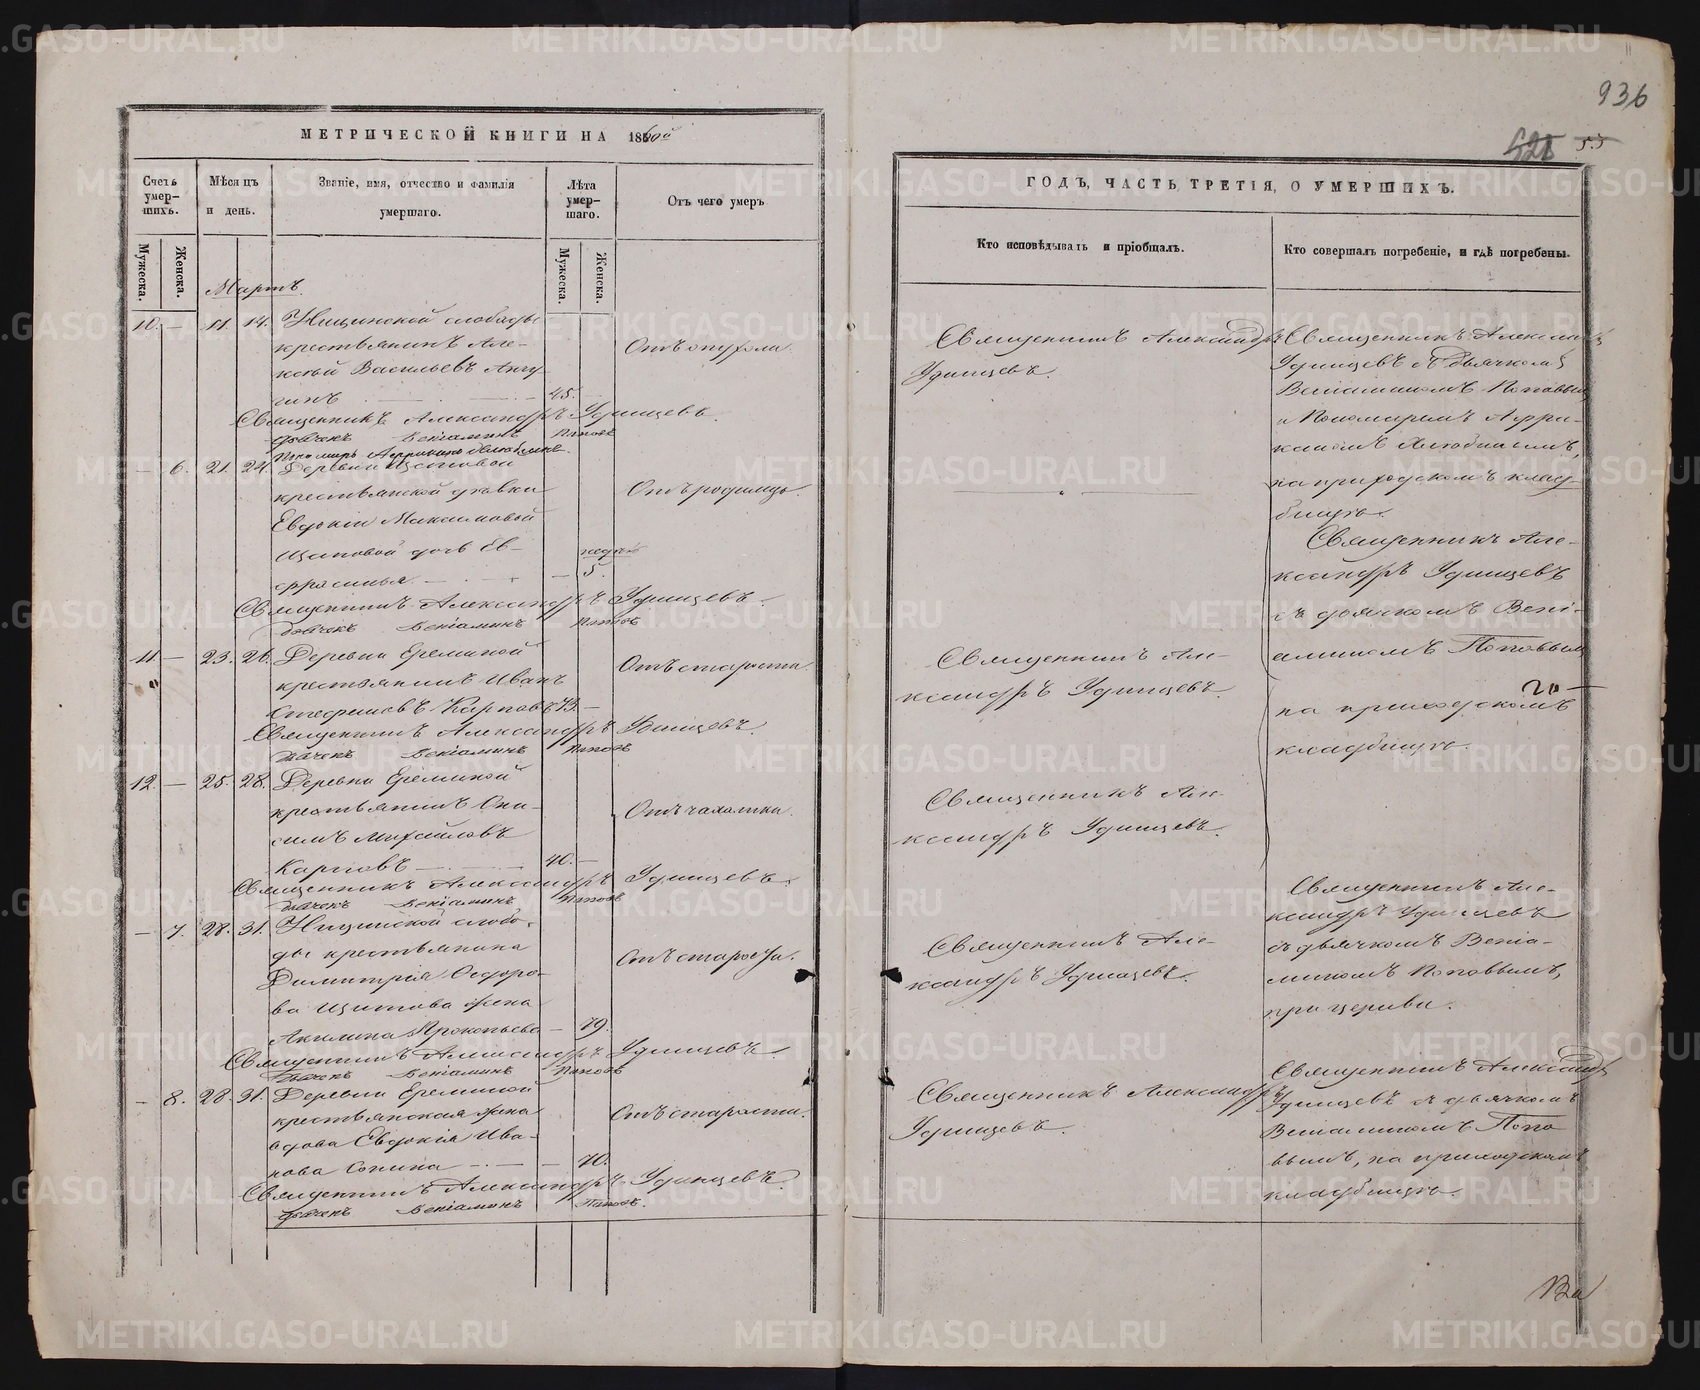 936
525 55
МЕТРИЧЕСКОЙ КНИГИ НА 1860й
Счетъ умер-шихъ.
Мѣсяцъ и день.
Званіе, имя, отчество и фамилія умершаго.
Лѣта умер-шаго.
Отъ чего умеръ
Мужеска.
Женска.
Мужеска.
Женска.
Мартъ.
10. — 11. 14. Ницинской слободы
крестьянинъ Але-
ксѣй Васильевъ
45.
Отъ опухоли.
Священникъ Александръ Удинцевъ.
Дьячекъ Веніаминъ Поповъ
Пономарь
— 6. 21. 24. Деревни Щитовой
крестьянской дѣвки
Евдокіи Максимовой
Щитовой дочь Ев-
фросинья —
недѣль
5.
Отъ родимца.
Священникъ Александръ Удинцевъ.
Дьячекъ Веніаминъ Поповъ
11 — 23. 26. Деревни Ереминой
крестьянинъ Иванъ
Стефановъ Карповъ 73. —
Отъ старости.
Священникъ Александръ Удинцевъ.
Дьячекъ Веніаминъ Поповъ
12. — 25. 28. Деревни Ереминой
крестьянинъ Они-
симъ Михайловъ
Карповъ — 40. —
Отъ чахотки.
Священникъ Александръ Удинцевъ.
Дьячекъ Веніаминъ Поповъ
— 7. 28. 31. Ницинской слобо-
ды крестьянина
Димитрія Ѳедоро-
ва Щитова жена
Акилина Прокопьева — 79.
Отъ старости.
Священникъ Александръ Удинцевъ.
Дьячекъ Веніаминъ Поповъ
— 8. 28. 31. Деревни Ереминой
крестьянская жена
вдова Евдокія Ива-
нова Сопина — 70.
Отъ старости.
Священникъ Александръ Удинцевъ.
Дьячекъ Веніаминъ Поповъ.
ГОДЪ, ЧАСТЬ ТРЕТІЯ, О УМЕРШИХЪ.
Кто исповѣдывалъ и пріобщалъ.
Кто совершалъ погребеніе, и гдѣ погребены.
Священникъ Александръ
Удинцевъ.
Священникъ Александръ
Удинцевъ съ дьячкомъ
Веніаминомъ Поповымъ
и Пономаремъ Афри-
каномъ
на приходскомъ клад-
бищѣ.
Священникъ Але-
ксандръ Удинцевъ
съ дьячкомъ Вені-
аминомъ Поповымъ
на приходскомъ
кладбищѣ.
20 —
Священникъ Але-
ксандръ Удинцевъ.
Священникъ Але-
ксандръ Удинцевъ.
Священникъ Але-
ксандръ Удинцевъ.
Священникъ Але-
ксандръ Удинцевъ
съ дьячкомъ Веніа-
миномъ Поповымъ,
при церкви.
Священникъ Александръ
Удинцевъ.
Священникъ Александръ
Удинцевъ съ дьячкомъ
Веніаминомъ Попо
вымъ, на приходскомъ
кладбищѣ.
METRIKI.GASO-URAL.RU